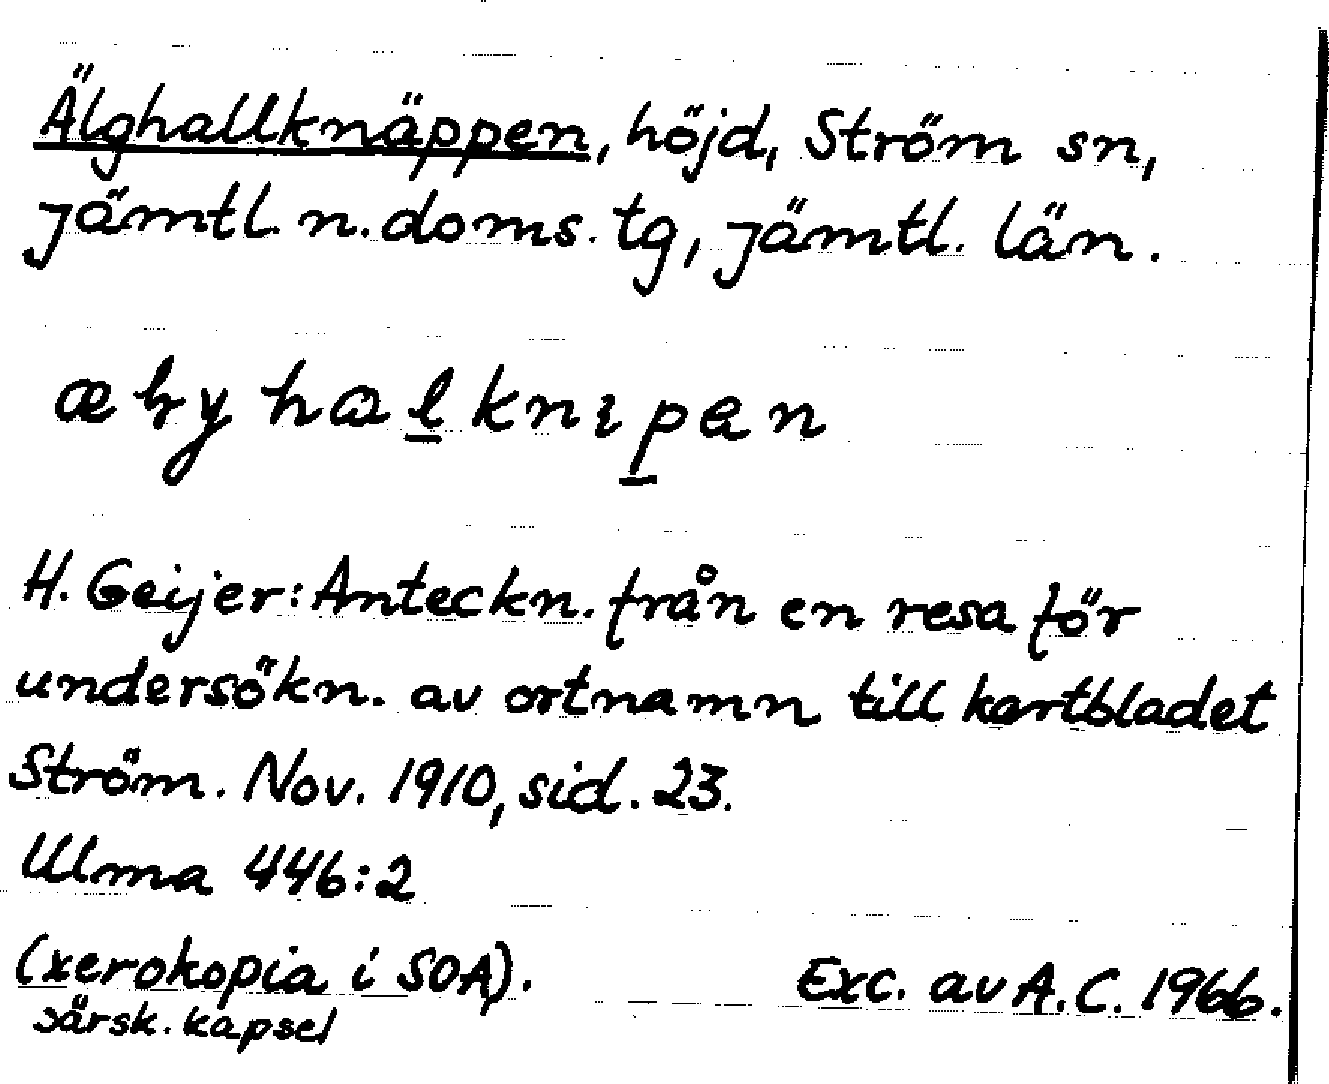 Älghallknäppen, höjd, Ström sn,
Jämtl. n. doms. tg, Jämtl. län.
H. Geijer: Anteckn. från en resa för
undersökn. av ortnamn till kartbladet
Ström. Nov. 1910, sid. 23.
Ulma 446:2
(xerokopia i SOA).
särsk. kapsel
Exc. av A.C. 1966.